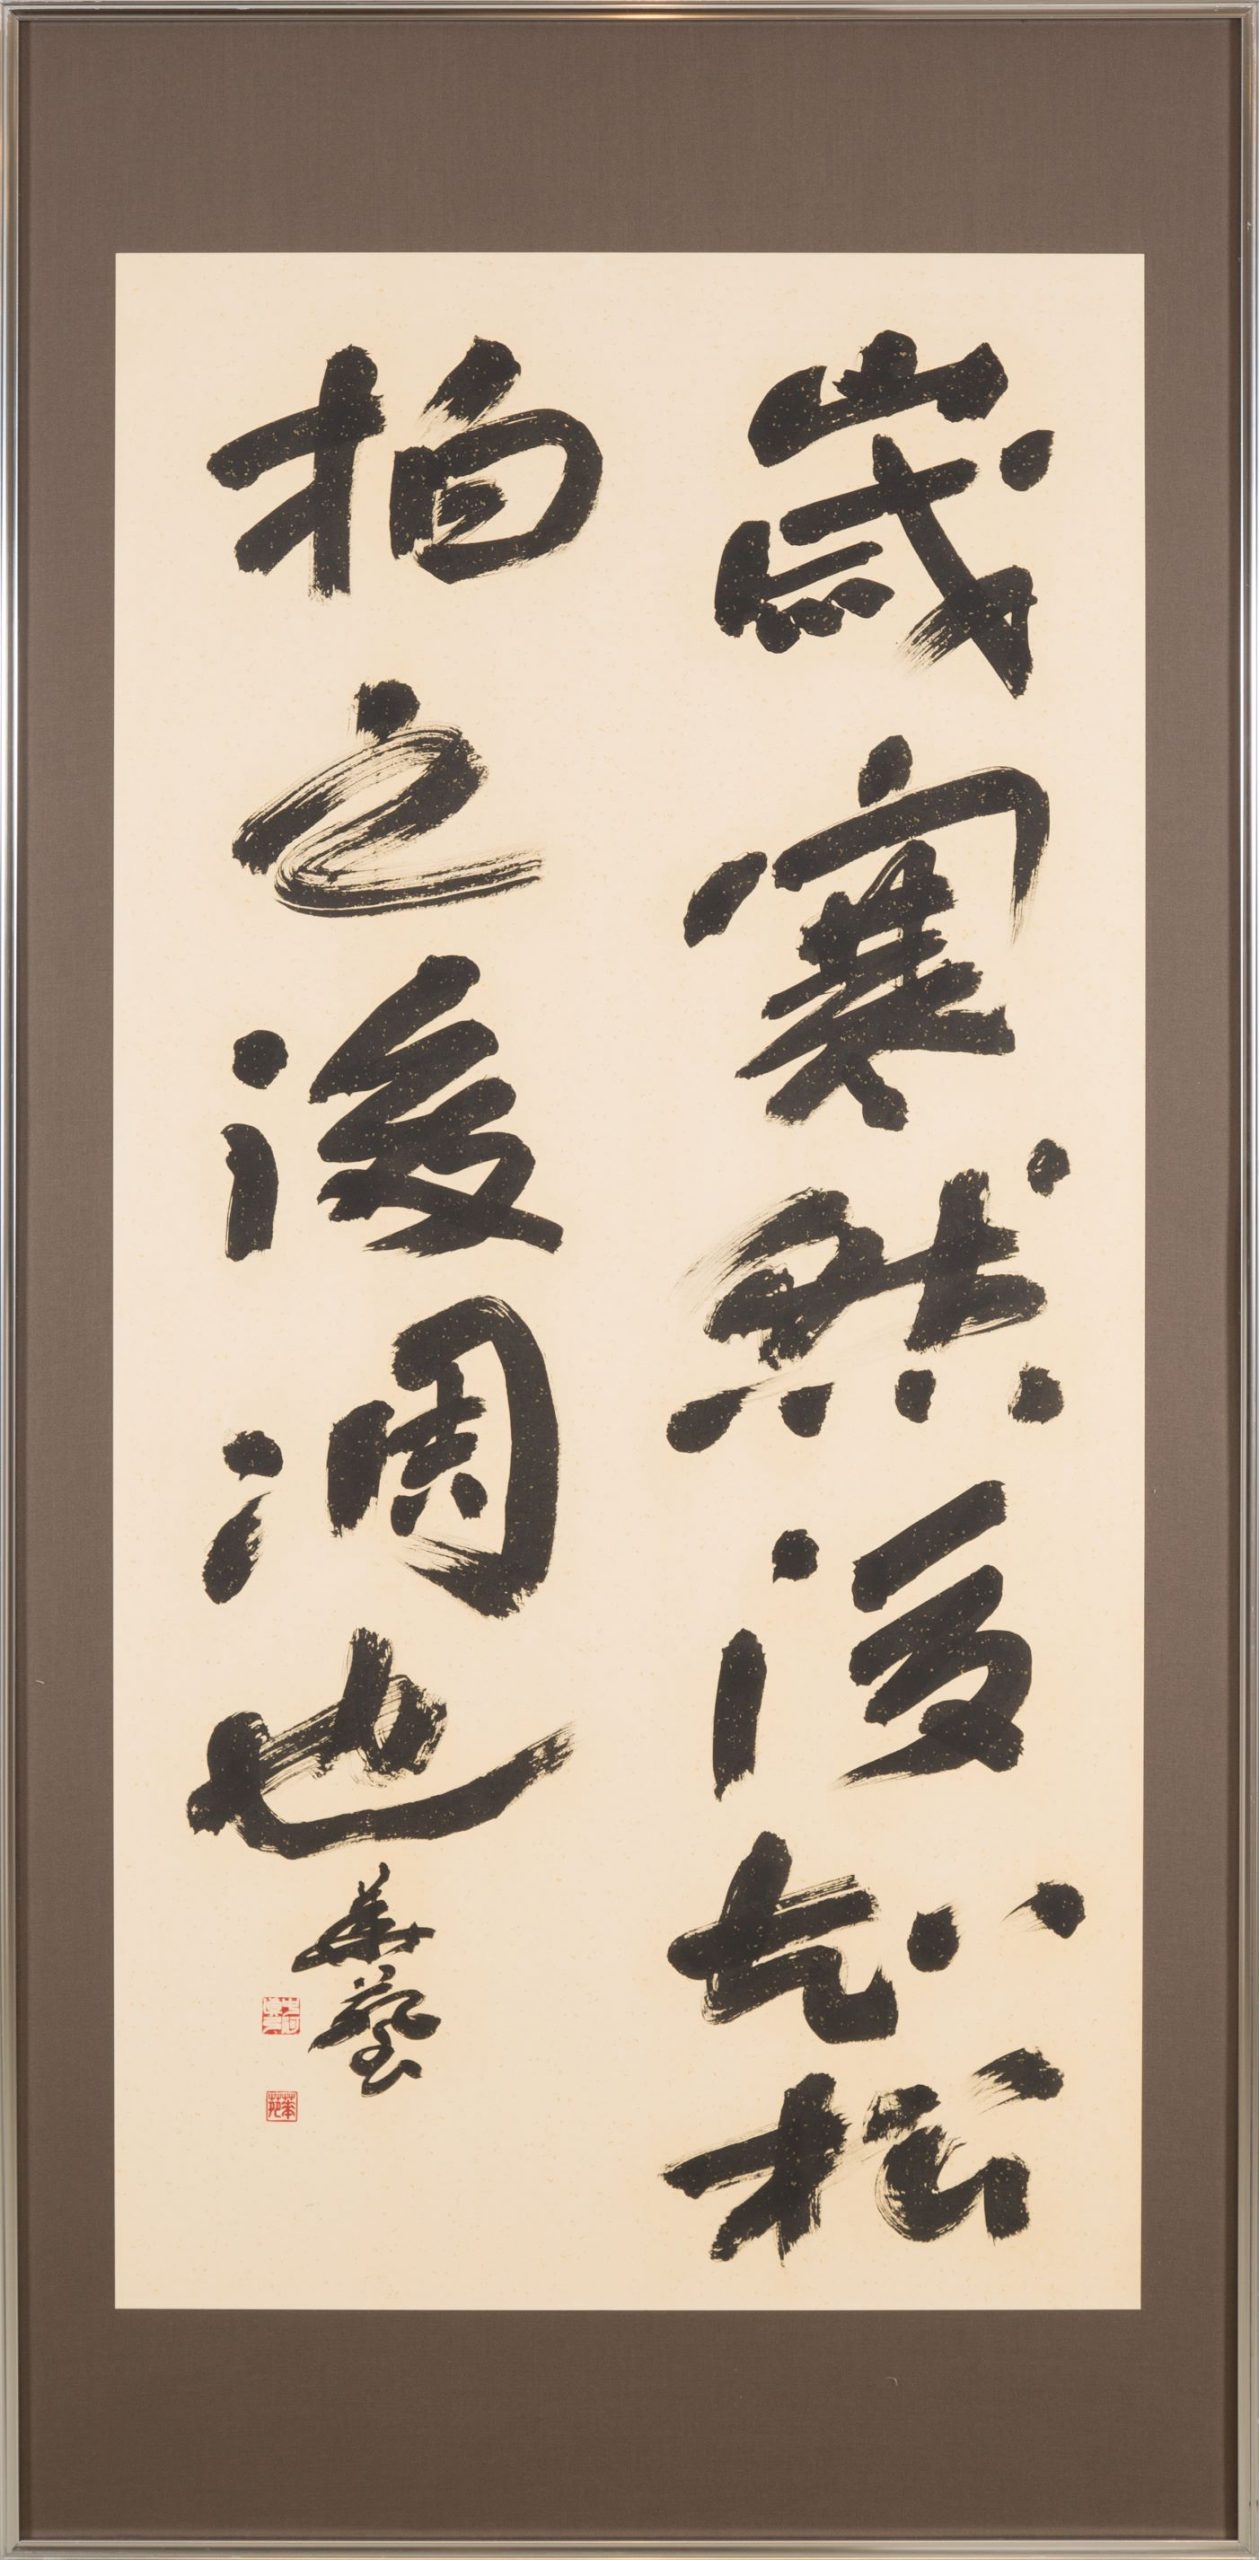 歳寒然後知松
柏之後凋也
華藝